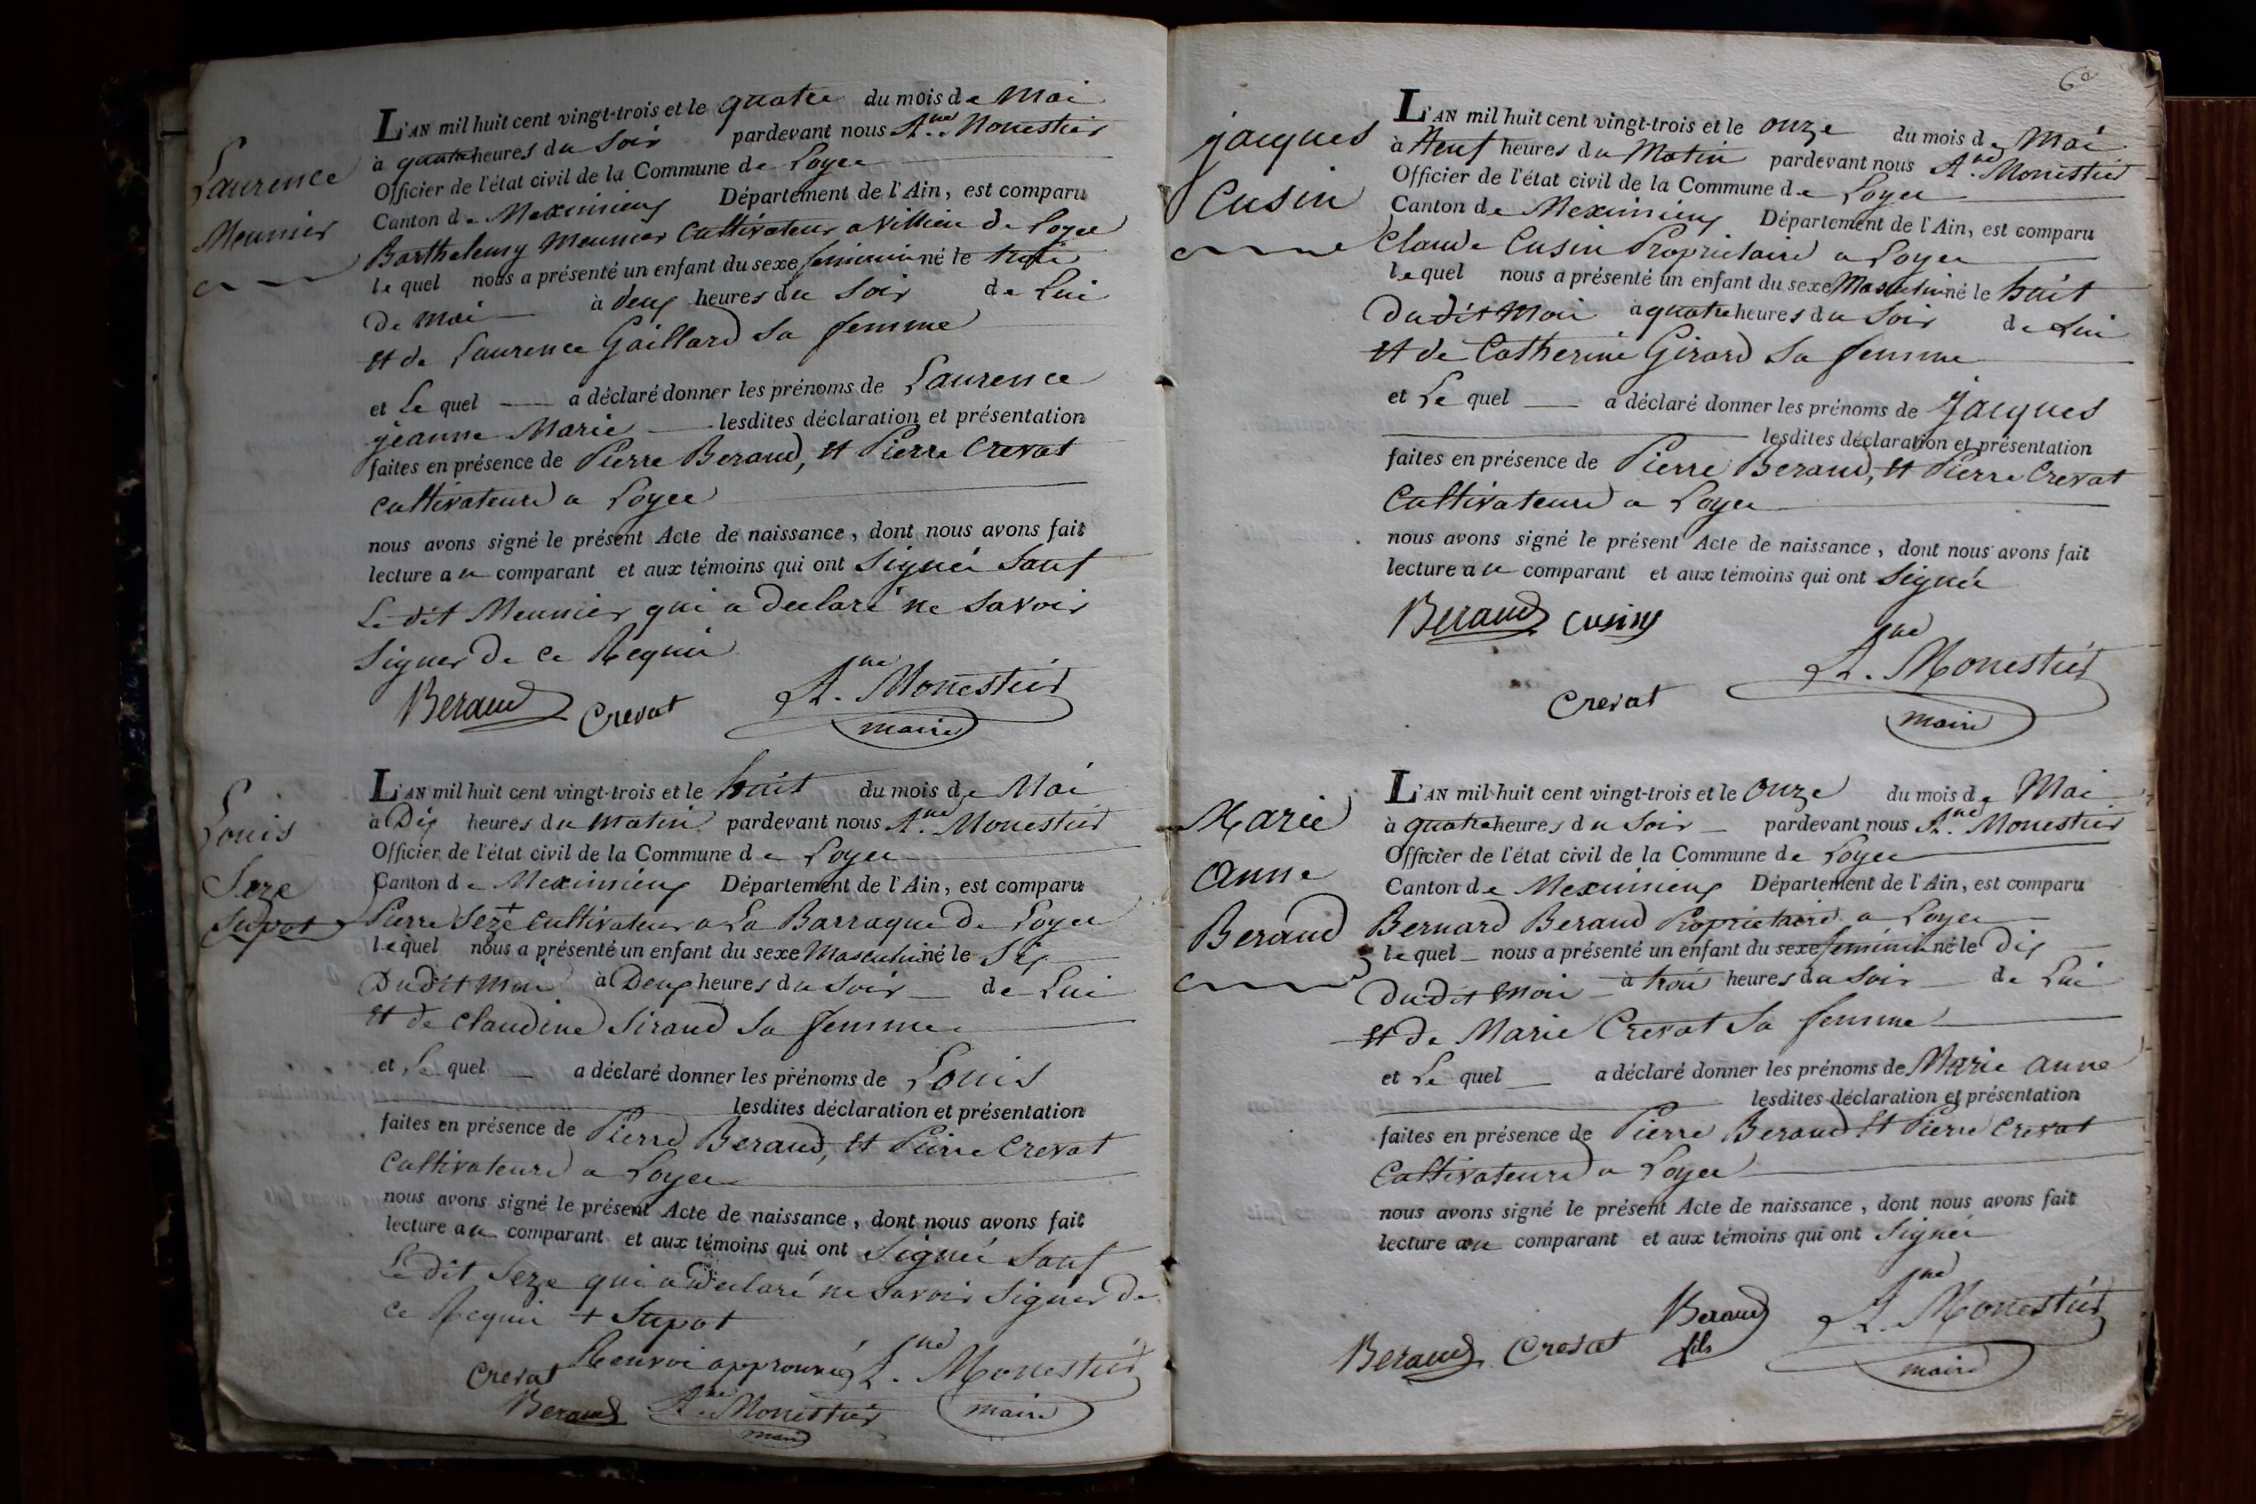 Laurence
Meunier
L'AN mil huit cent vingt-trois et le quatre du mois de Mai
à quatre heures du Soir pardevant nous A.ne Monestier
Officier de l'état civil de la Commune de Loyes
Canton de Meximieux Département de l'Ain, est comparu
Barthelemy Meunier Cultivateur a Villieu de Loyes
lequel nous a présenté un enfant du sexe feminin né le trois
de mai à deux heures du Soir de Lui
et de Laurence Gaillard Sa femme
et Le quel a déclaré donner les prénoms de Laurence
jeanne Marie lesdites déclaration et présentation
faites en présence de Pierre Beraud, et Pierre Crevat
Cultivateurs a Loyes
nous avons signé le présent Acte de naissance, dont nous avons fait
lecture au comparant et aux témoins qui ont Signés Sauf
Le dit Meunier qui a declaré ne Savoir
Signer de ce Requis
Beraud Crevat A.ne Monestier
maire
Louis
Seze
Supot
L'AN mil huit cent vingt-trois et le huit du mois de Mai
à Dix heures du matin pardevant nous A.ne Monestier
Officier de l'état civil de la Commune de Loyes
Canton de Meximieux Département de l'Ain, est comparu
Pierre Seze + cultivateur a La Barraque de Loyes
lequel nous a présenté un enfant du sexe Masculin né le Six
Dudit Mois à Deux heures du Soir de Lui
et de Claudine Siraud Sa femme
et Le quel a déclaré donner les prénoms de Louis
lesdites déclaration et présentation
faites en présence de Pierre Beraud, et Pierre Crevat
Cultivateurs a Loyes
nous avons signé le présent Acte de naissance, dont nous avons fait
lecture au comparant et aux témoins qui ont Signés Sauf
Le dit Seze qui a declaré ne Savoir Signer de
ce Requis + Supot
Renvoi approuvé A.ne Monestier
Crevat
Beraud A.ne Monestier maire
maire
6
jacques
Cusin
L'AN mil huit cent vingt-trois et le onze du mois de Mai
à Neuf heures du Matin pardevant nous A.ne Monestier
Officier de l'état civil de la Commune de Loyes
Canton de Meximieux Département de l'Ain, est comparu
Claude Cusin Proprietaire a Loyes
lequel nous a présenté un enfant du sexe Masculin né le huit
Dudit Mois à quatre heures du Soir de Lui
et de Catherine Girard Sa femme
et Le quel a déclaré donner les prénoms de jacques
lesdites déclaration et présentation
faites en présence de Pierre Beraud, et Pierre Crevat
Cultivateurs a Loyes
nous avons signé le présent Acte de naissance, dont nous avons fait
lecture au comparant et aux témoins qui ont Signés
Beraud Cusin
A.ne Monestier
Crevat
maire
Marie
Anne
Beraud
L'AN mil huit cent vingt-trois et le Onze du mois de Mai
à quatre heures du Soir pardevant nous A.ne Monestier
Officier de l'état civil de la Commune de Loyes
Canton de Meximieux Département de l'Ain, est comparu
Bernard Beraud Proprietaire a Loyes
lequel nous a présenté un enfant du sexe feminin né le dix
Dudit Mois à trois heures du Soir de Lui
et de Marie Crevat Sa femme
et Le quel a déclaré donner les prénoms de Marie Anne
lesdites déclaration et présentation
faites en présence de Pierre Beraud et Pierre Crevat
Cultivateurs a Loyes
nous avons signé le présent Acte de naissance, dont nous avons fait
lecture au comparant et aux témoins qui ont Signés
Beraud Crevat Beraud fils A.ne Monestier
maire